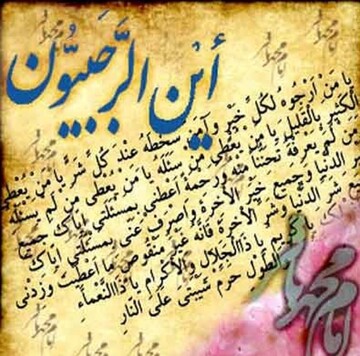 أَيْنَ الرَّجَبِيُّون
يا مَنْ اَرْجُوهُ لِكُلِّ خَيْرٍ وَآمَنُ سَخَطَهُ عِنْدَ كُلِّ شَرٍّ يا مَنْ يُعْطِي
الْكَثيرَ بِالْقَليلِ يا مَنْ يُعْطي مَنْ سَئَلَهُ يا مَنْ يُعْطي مَنْ لَمْ يَسْئَلْهُ
وَمَنْ لَمْ يَعْرِفْهُ تَحَنُّناً مِنْهُ وَرَحْمَةً اَعْطِني بِمَسْئَلَتي اِيّاكَ جَميعَ
خَيْرِ الدُّنْيا وَجَميعَ خَيْرِ الاْخِرَةِ وَاصْرِفْ عَنّي بِمَسْئَلَتي اِيّاكَ
شَرِّ الدُّنْيا وَشَرِّ الاْخِرَةِ فَاِنَّهُ غَيْرُ مَنْقُوصٍ ما اَعْطَيْتَ وَزِدْني
يا كَريمُ يا ذَاالْجَلالِ وَالاْكْرامِ يا ذَاالنَّعْماءِ
الطَّوْلِ حَرِّمْ شَيْبَتي عَلَى النّارِ
امام محمد باقر